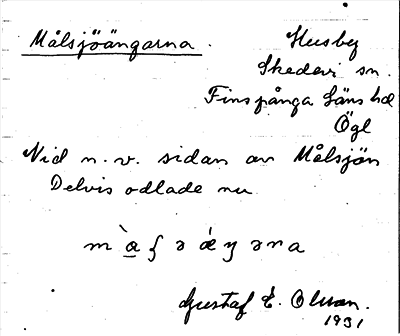 Målsjöängarna. Husby
Skedevi sn.
Finspånga läns hd
Ögl
Vid n.v. sidan av Målsjön
Delvis odlade nu
Gustaf E. Olsson.
1931